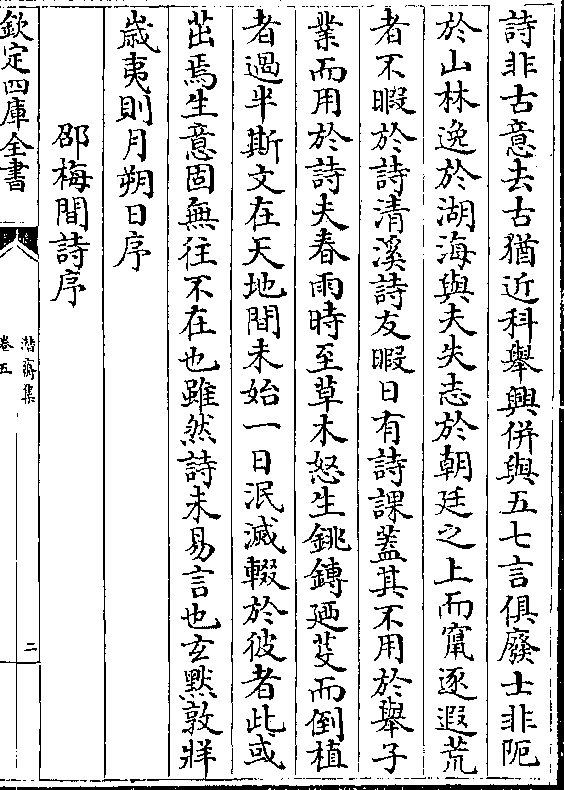 詩非古意去古猶近科舉興併與五七言俱廢士非阨
於山林逸於湖海與夫失志於朝廷之上而竄逐遐荒
者不暇於詩清溪詩友暇日有詩課蓋其不用於舉子
業而用於詩夫春雨時至草木怒生銚鎛廼芟而倒植
者過半斯文在天地間未始一日泯滅輟於彼者此或
茁焉生意固無往不在也雖然詩未易言也玄黙敦牂
歳夷則月朔日序
邵梅間詩序
欽定四庫全書
潜齋集
卷五
二